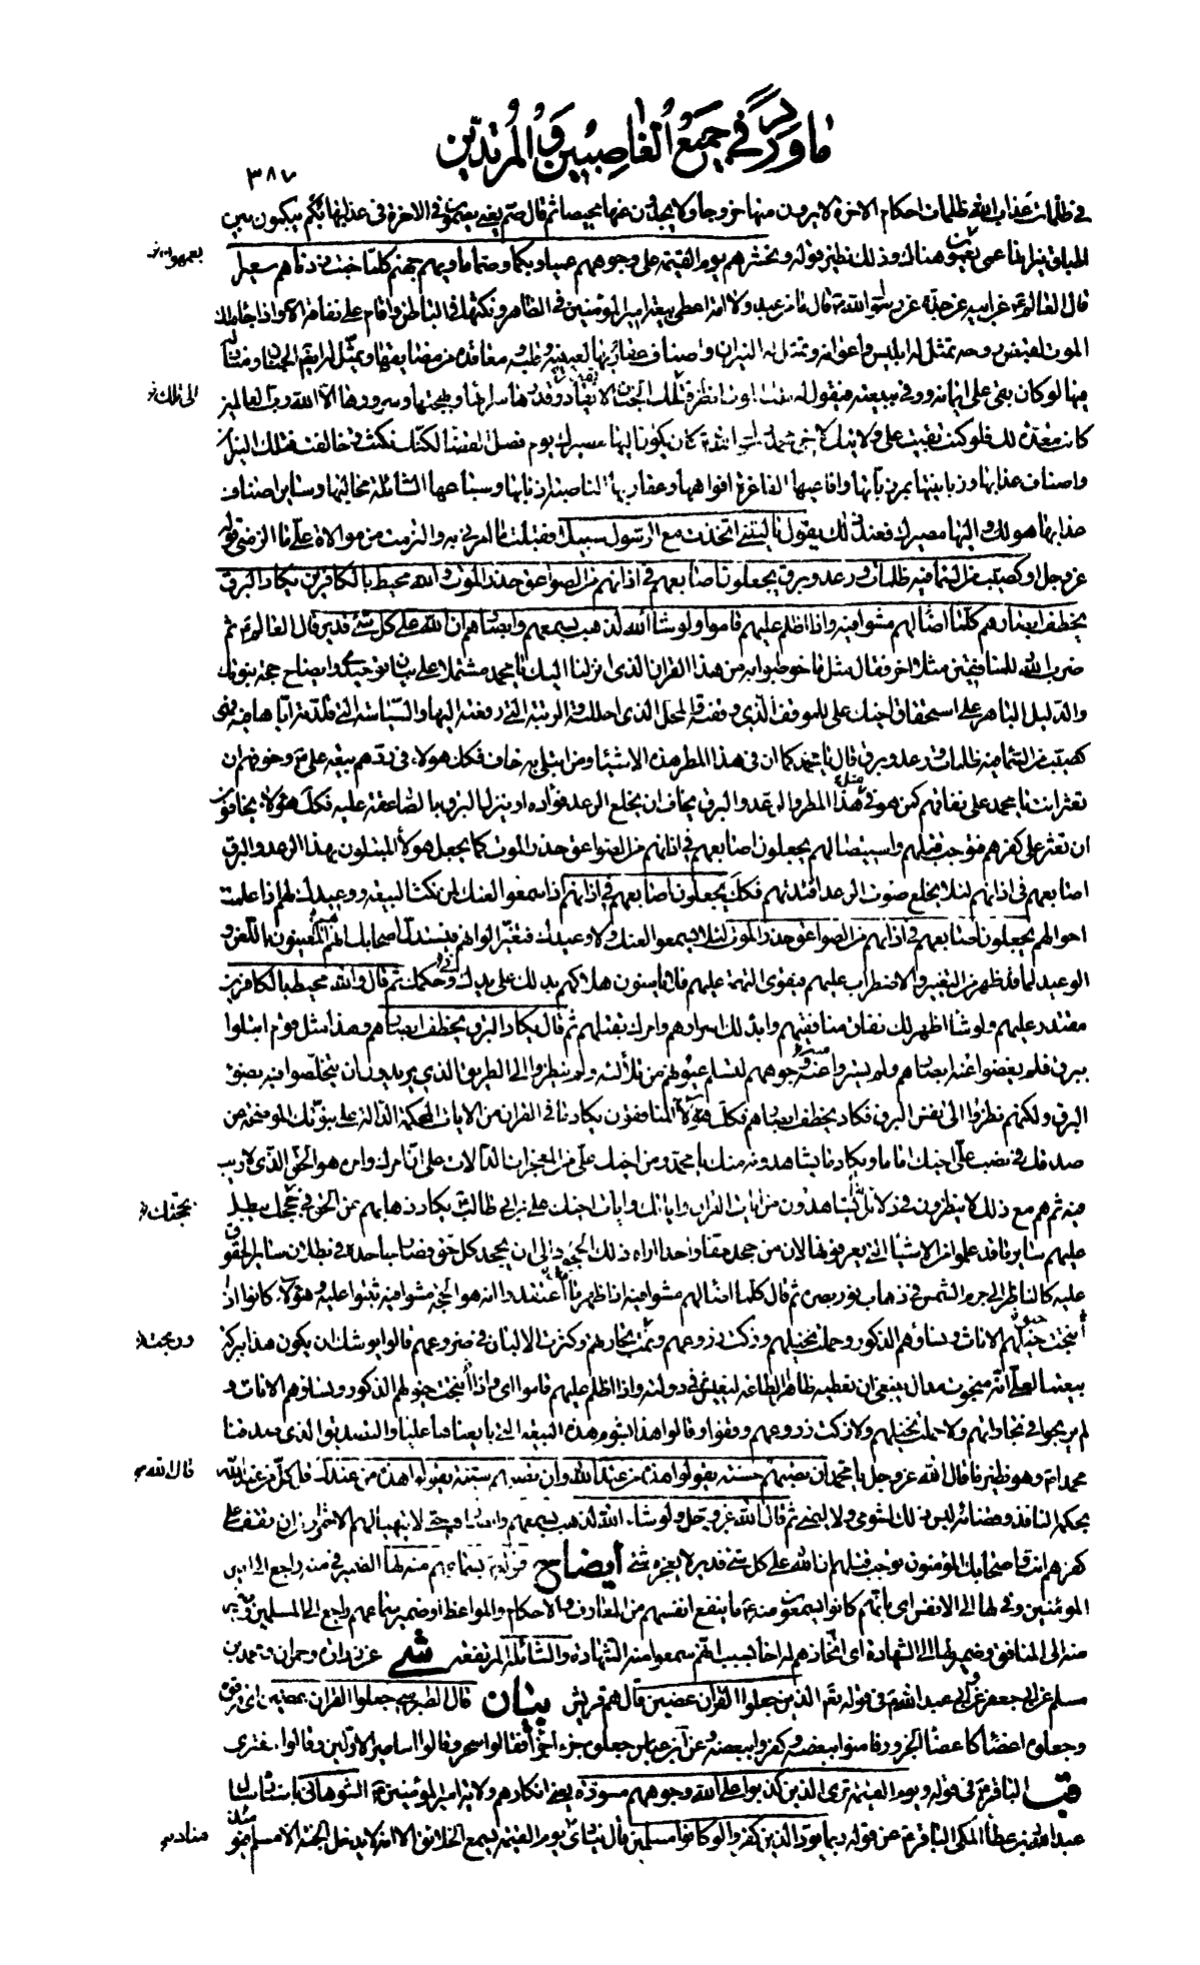 ما ورد في جميع الغاصبين والمرتدين
٣٨٧
في ظلمات عذاب الله في ظلمات احكام الاخرة لا يرون منها خروجا ولا يجدون عنها محيصا ثم قال صم يعني يصمون في الاخرة في عذابها بكم يبكمون بين
اطباق نيرانها عمى يعمون هناك وذلك نظير قوله ونحشرهم يوم القيمة على وجوههم عميا وبكما وصما ماويهم جهنم كلما خبت زدناهم سعيرا
قال العالم ع عن ابيه عن جده عن رسول الله ص قال ما من عبد ولا امة اعطى بيعة امير المؤمنين في الظاهر ونكثها في الباطن واقام على نفاقه الا واذا جاءه ملك
الموت لقبض روحه تمثل له ابليس واعوانه وتمثل له النيران واصناف عقابها لعينيه وقلبه ومقاعده من مضايقها وتمثل له ايضا الجنان ومنازله
فيها لو كان بقى على ايمانه ووفى ببيعته فيقول له ملك الموت انظر فتلك الجنان لا يقادر قدر سرائها وبهجتها وسرورها الا الله رب العالمين
كانت معدة لك فلو كنت بقيت على ولايتك لاخي محمد رسول الله ص كان يكون اليها مصيرك يوم فصل القضا لكنك نكثت وخالفت فتلك النيران
واصناف عذابها وزبانيتها بمرزباتها وافاعيها الفاغرة افواهها وعقاربها الناصبة اذنابها وسباعها الشائلة مخالبها وسائر اصناف
عذابها هو لك واليها مصيرك فعند ذلك يقول يا ليتني اتخذت مع الرسول سبيلا فقبلت ما امرني به والتزمت من موالاة علي ما الزمني قوله
عز وجل او كصيب من السماء فيه ظلمات ورعد وبرق يجعلون اصابعهم في اذانهم من الصواعق حذر الموت والله محيط بالكافرين يكاد البرق
يخطف ابصارهم كلما اضاء لهم مشوا فيه واذا اظلم عليهم قاموا ولو شاء الله لذهب بسمعهم وابصارهم ان الله على كل شئ قدير قال العالم ع ثم
ضرب الله للمنافقين مثلا اخر فقال مثل ما خوطبوا به من هذا القران الذي انزلنا اليك يا محمد مشتملا على بيان توحيدي وايضاح حجة نبوتك
والدليل الباهر على استحقاق اخيك علي للموقف الذي وقفته والمحل الذي احللته والرتبة التي رفعته اليها والسياسة التي قلدته اياها فهي
كصيب من السماء فيه ظلمات ورعد وبرق قال يا محمد كما ان في هذا المطر هذه الاشياء ومن ابتلي به خاف فكذلك هولاء في ردهم بيعة علي ع وخوفهم ان
تعثر انت يا محمد على نفاقهم كمن هو في مثل هذا المطر والرعد والبرق يخاف ان يخلع الرعد فؤاده او ينزل البرق بالصاعقة عليه فكذلك هؤلاء يخافون
ان تعثر على كفرهم فتوجب قتلهم واستيصالهم يجعلون اصابعهم في اذانهم من الصواعق حذر الموت كما يجعل هولاء المبتلون بهذا الرعد والبرق
اصابعهم في اذانهم لئلا يخلع صوت الرعد افئدتهم فكذلك يجعلون اصابعهم في اذانهم اذا سمعوا لعنك لمن نكث البيعة ووعيدك لهم اذا علمت
احوالهم يجعلون اصابعهم في اذانهم من الصواعق حذر الموت لئلا يسمعوا لعنك ولا وعيدك فتغير الوانهم فيستدل اصحابك انهم المعنيون باللعن و
الوعيد لما قد ظهر من التغير والاضطراب عليهم فيقوى التهمة عليهم فلا يأمنون هلاكهم بذلك على يدك وفي حكمك ثم قال والله محيط بالكافرين
مقتدر عليهم ولو شاء اظهر لك نفاق منافقيهم وابدى لك اسرارهم وامرك بقتلهم ثم قال يكاد البرق يخطف ابصارهم وهذا مثل قوم ابتلوا
ببرق فلم يغضوا عنه ابصارهم ولم يستروا عنه وجوههم لتسلم عيونهم من تلألئه ولم ينظروا الى الطريق الذي يريدون ان يتخلصوا فيه بضوء
البرق ولكنهم نظروا الى نفس البرق فكاد يخطف ابصارهم فكذلك هؤلاء المنافقون يكاد ما في القران من الايات المحكمة الدالة على نبوتك الموضحة عن
صدقك في نصب علي اخيك اماما ويكاد ما يشاهدونه منك يا محمد ومن اخيك علي من المعجزات الدالات على ان امرك وامره هو الحق الذي لا ريب
فيه ثم هم مع ذلك لا ينظرون في دلائل ما يشاهدون من ايات القران واياتك وايات اخيك علي بن ابي طالب يكاد ذهابهم عن الحق في حججك يبطل
عليهم سائر ما قد علموا من الاشياء التي يعرفونها لان من جحد حقا واحدا اداه ذلك الجحود الى ان يجحد كل حق فصار جاحده في بطلان سائر الحقوق
عليه كالناظر الى جرم الشمس في ذهاب نور بصره ثم قال كلما اضاء لهم مشوا فيه اذا ظهر ما اعتقدوا انه هو الحجة مشوا فيه ثبتوا عليه وهؤلاء كانوا اذا
انتجت خيولهم الاناث ونساؤهم الذكور وحملت نخيلهم وزكت زروعهم ونمت تجارتهم وكثرت الالبان في ضروعهم قالوا يوشك ان يكون هذا ببركة
بيعتنا لعلي انه مبخوت مدال ينبغي ان نعطيه ظاهر الطاعة لنعيش في دولته واذا اظلم عليهم قاموا اي واذا انتجت خيولهم الذكور ونساؤهم الاناث و
لم يربحوا في تجاراتهم ولا حملت نخيلهم ولا زكت زروعهم وقفوا وقالوا هذا بشوم هذه البيعة التي بايعناها عليا والتصديق الذي صدقنا
محمدا ص وهو نظير ما قال الله عز وجل يا محمد ان تصبهم حسنة يقولوا هذه من عند الله وان تصبهم سيئة يقولوا هذه من عندك قل كل من عند الله
بحكمه النافذ وقضائه ليس ذلك لشومي ولا ليمني ثم قال الله عز وجل ولو شاء الله لذهب بسمعهم وابصارهم حتى لا يتهيأ لهم الاحتراز ان تقف على
كفرهم انت واصحابك المؤمنون وتوجب قتلهم ان الله على كل شئ قدير لا يعجزه شئ ايضاح قوله بسماعهم منه لها الضمير في منه راجع الى امير
المؤمنين وفي لها الى الانفس اي بانهم كانوا يسمعون منه ع ما ينفع انفسهم من المعارف والاحكام والمواعظ او ضمير سماعهم راجع الى المسلمين وضمير
منه الى المنافق وضمير لها الى الشهادة اي اتخاذهم له اخا بسبب انهم سمعوا منه الشهادة والشائلة المرتفعة شي عن زرارة وحمران ومحمد بن
مسلم عن ابي جعفر وابي عبد الله ع في قوله تعم الذين جعلوا القران عضين قال هم قريش بيان قال الطبرسي جعلوا القران عضين اي فرقوه
وجعلوه اعضاء كاعضاء الجزور فامنوا ببعضه وكفروا ببعضه وعن ابن عباس جعلوه جزءا جزءا فقالوا سحر وقالوا اساطير الاولين وقالوا مفترى
قب الباقر ع في قوله ويوم القيمة ترى الذين كذبوا على الله وجوههم مسودة يعني انكارهم ولاية امير المؤمنين ع الشوهاني باسناده
عبد الله بن عطا المكي الباقر ع عن قوله ربما يود الذين كفروا لو كانوا مسلمين قال ينادي يوم القيمة يسمع الخلائق الا انه لا يدخل الجنة الا مسلم فثم